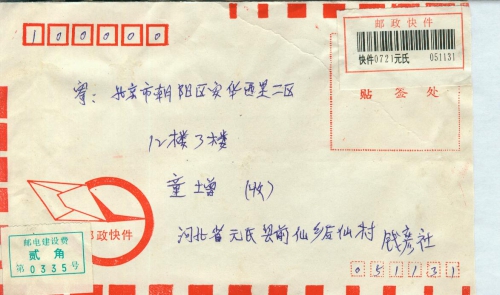 100000
邮政快件
快件0721元氏 051131
贴签处
寄：北京市朝阳区安华西里二区
12楼3楼
童增（收）
邮政快件
邮电建设费
贰角
第0335号
河北省元氏县前仙乡后仙村
051131